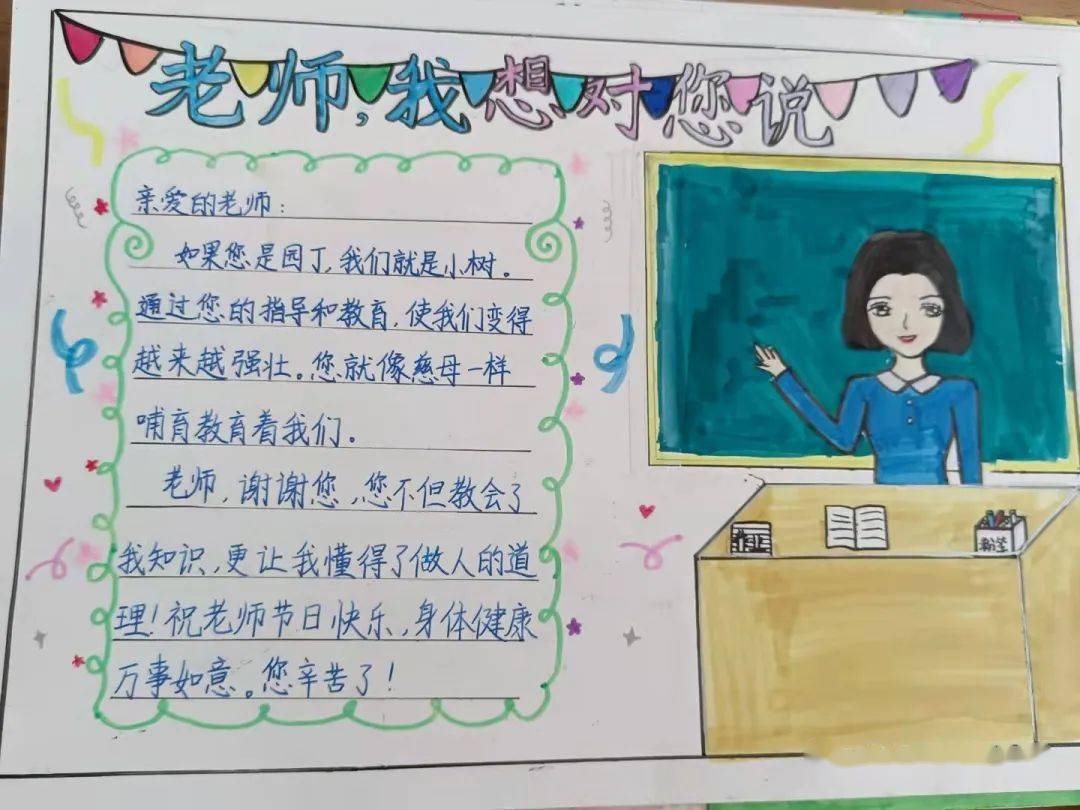 老师,我想对您说
亲爱的老师:
如果您是园丁,我们就是小树。
通过您的指导和教育,使我们变得
越来越强壮。您就像慈母一样
哺育教育着我们。
老师,谢谢您,您不但教会了
我知识,更让我懂得了做人的道
理!祝老师节日快乐,身体健康
万事如意。您辛苦了!
作业
粉笔